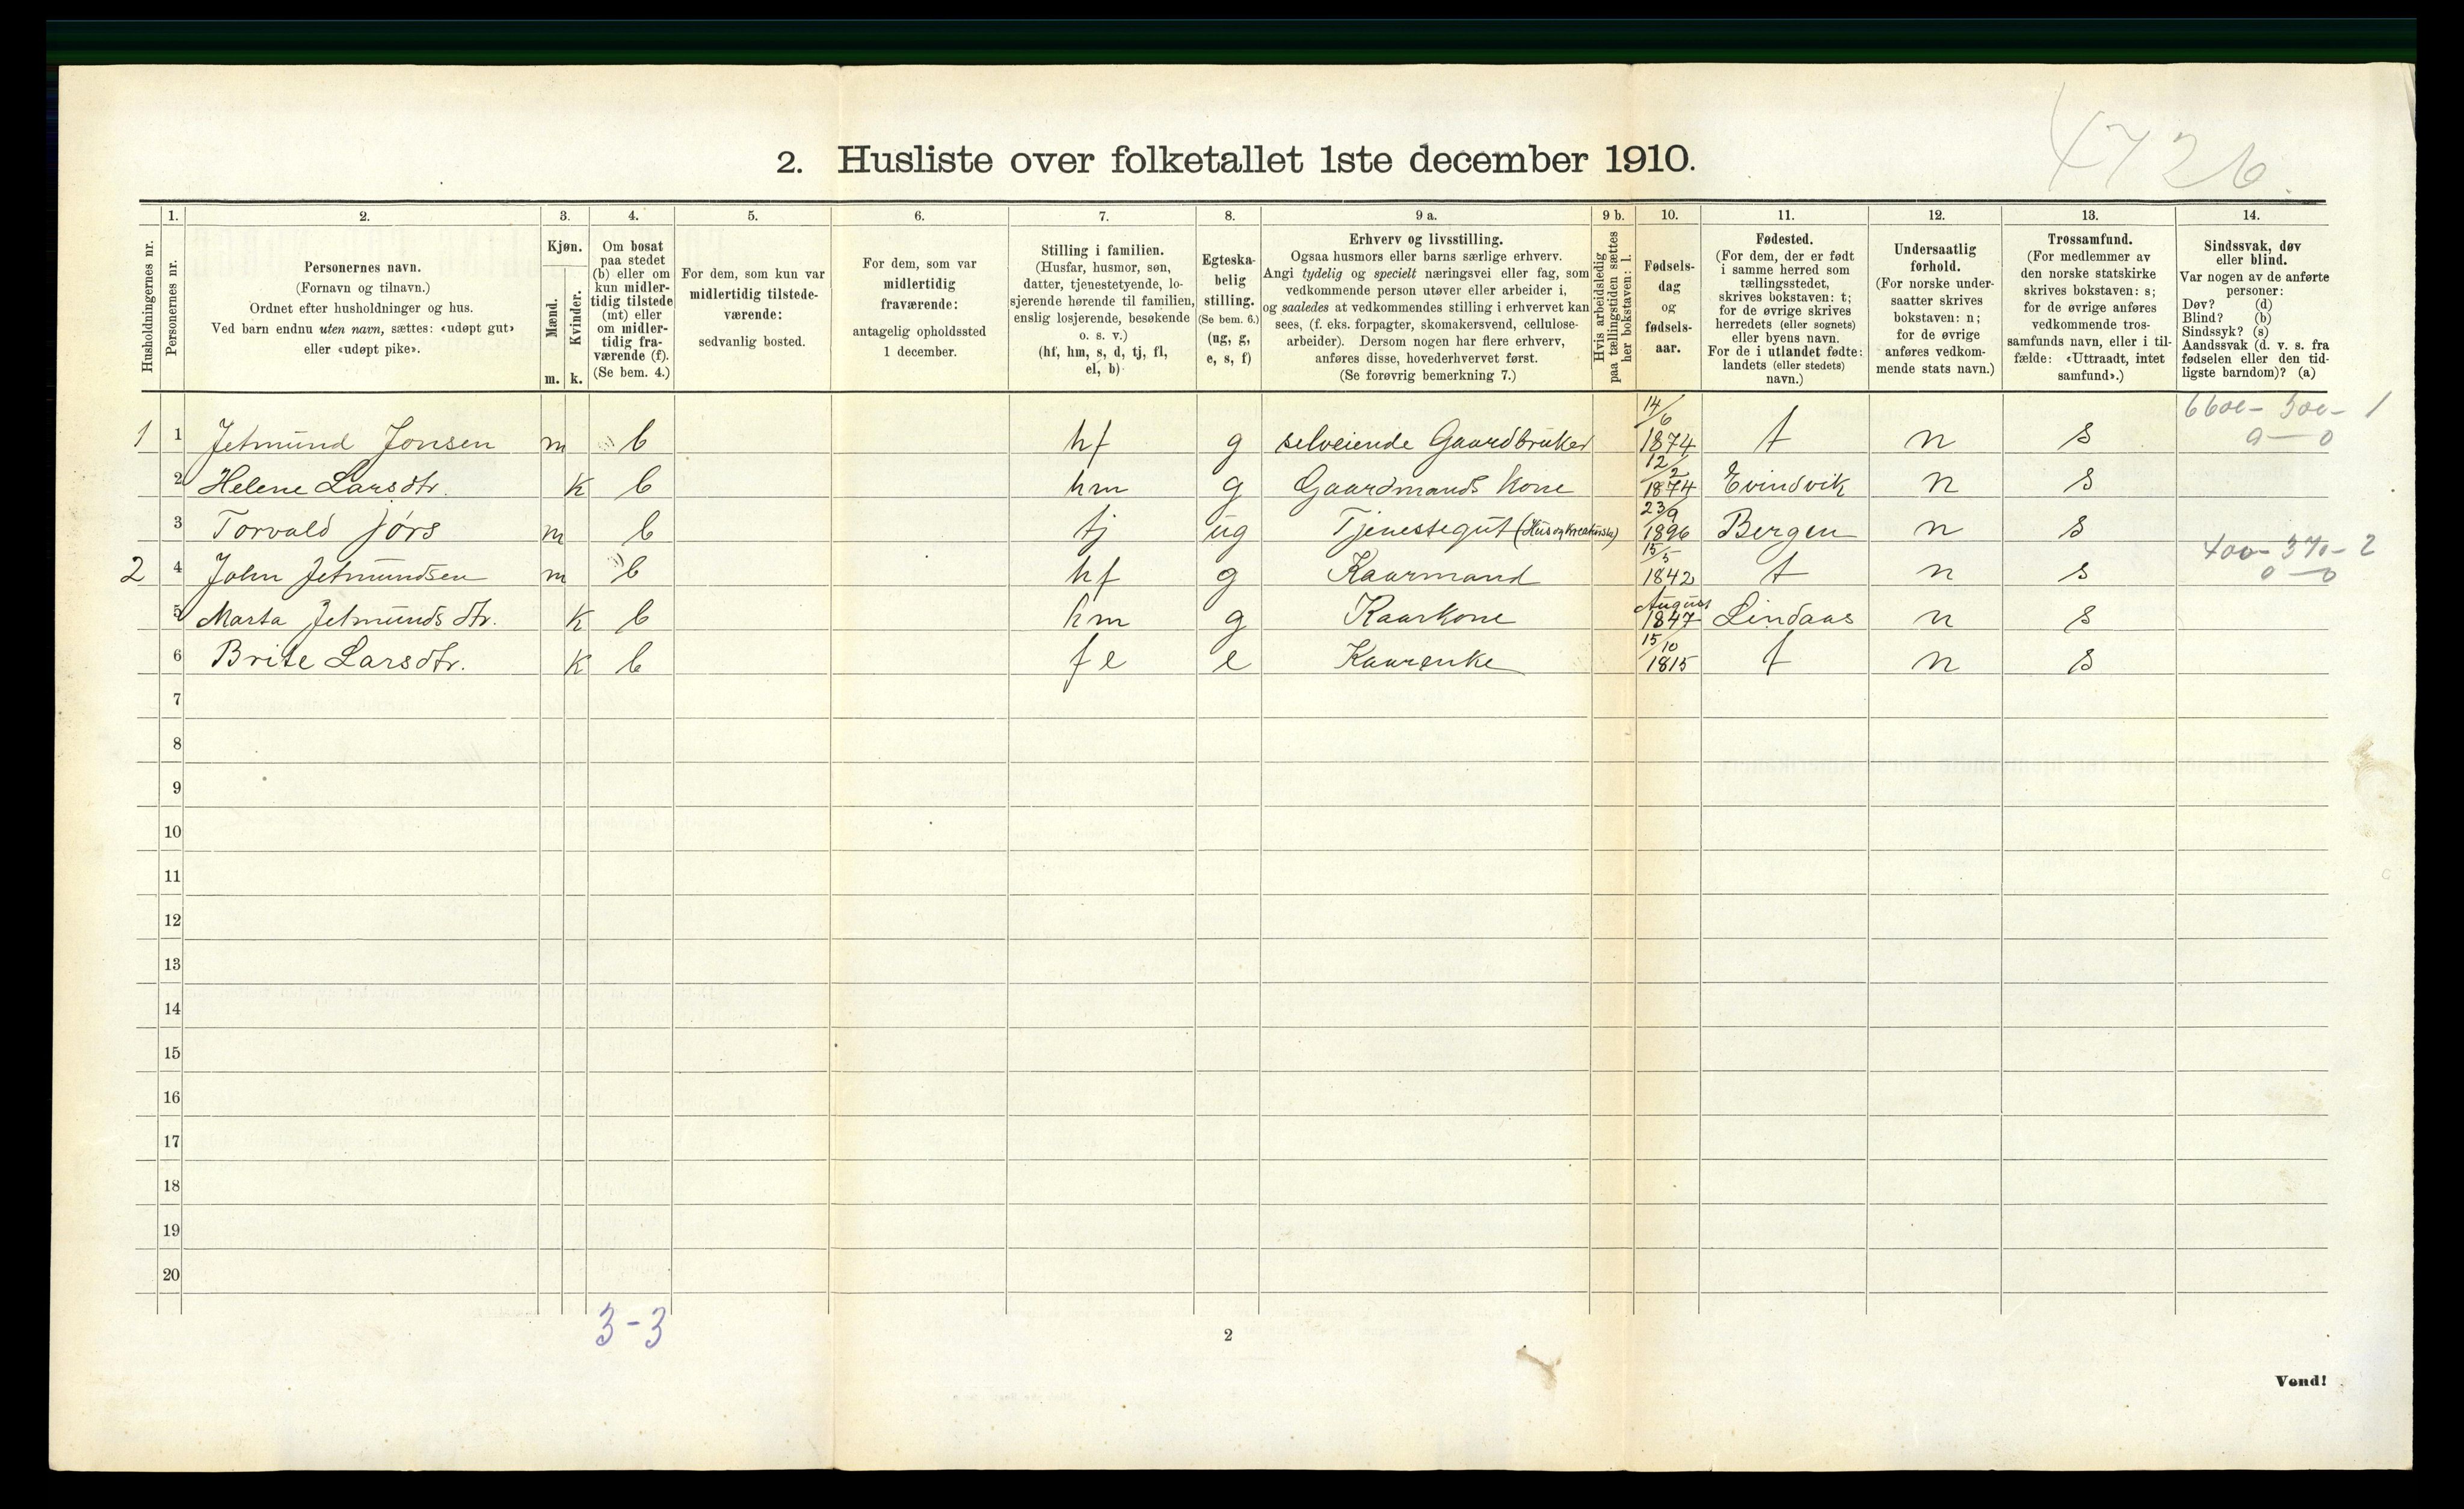 4726.
2. Husliste over folketallet 1ste december 1910.
Husholdningernes nr.
1.
Personernes nr.
2.
Personernes navn.
(Fornavn og tilnavn.)
Ordnet efter husholdninger og hus.
Ved barn endnu uten navn, sættes: «udøpt gut»
eller «udøpt pike».
3.
Kjøn.
Mænd.
m.
Kvinder.
k.
4.
Om bosat
paa stedet
(b) eller om
kun midler-
tidig tilstede
(mt) eller
om midler-
tidig fra-
værende (f).
(Se bem. 4.)
5.
For dem, som kun var
midlertidig tilstede-
værende:
sedvanlig bosted.
6.
For dem, som var
midlertidig
fraværende:
antagelig opholdssted
1 december.
7.
Stilling i familien.
(Husfar, husmor, søn,
datter, tjenestetyende, lo-
sjerende hørende til familien,
enslig losjerende, besøkende
o. s. v.)
(hf, hm, s, d, tj, fl,
el, b)
8.
Egteska-
belig
stilling.
(Se bem. 6.)
(ug, g,
e, s, f)
9 a.
Erhverv og livsstilling.
Ogsaa husmors eller barns særlige erhverv.
Angi tydelig og specielt næringsvei eller fag, som
vedkommende person utøver eller arbeider i,
og saaledes at vedkommendes stilling i erhvervet kan
sees, (f. eks. forpagter, skomakersvend, cellulose-
arbeider). Dersom nogen har flere erhverv,
anføres disse, hovederhvervet først.
(Se forøvrig bemerkning 7.)
9 b.
Hvis arbeidsledig
paa tællingstiden sættes
her bokstaven: l.
10.
Fødsels-
dag
og
fødsels-
aar.
11.
Fødested.
(For dem, der er født
i samme herred som
tællingsstedet,
skrives bokstaven: t;
for de øvrige skrives
herredets (eller sognets)
eller byens navn.
For de i utlandet fødte:
landets (eller stedets)
navn.)
12.
Undersaatlig
forhold.
(For norske under-
saatter skrives
bokstaven: n;
for de øvrige
anføres vedkom-
mende stats navn.)
13.
Trossamfund.
(For medlemmer av
den norske statskirke
skrives bokstaven: s;
for de øvrige anføres
vedkommende tros-
samfunds navn, eller i til-
fælde: «Uttraadt, intet
samfund».)
14.
Sindssvak, døv
eller blind.
Var nogen av de anførte
personer:
Døv? (d)
Blind? (b)
Sindssyk? (s)
Aandssvak (d. v. s. fra
fødselen eller den tid-
ligste barndom)? (a)
1 1 Jetmund Jonsen m b hf g selveiende Gaardbruker 14/6 1874 t n s 6600 - 500 - 1
0 - 0
2 Helene Larsdtr. k b hm g Gaardmands kone 12/2 1874 Evindvik n s
3 Torvald Jørs m b tj ug Tjenestegut 23/9 1896 Bergen n s
2 4 John Jetmundsen m b hf g Kaarmand 15/5 1842 t n s 400 - 370 - 2
0 - 0
5 Marta Jetmundsdtr. k b hm g Kaarkone August 1847 Lindaas n s
6 Brite Larsdtr. k b fl e Kaarenke 15/10 1815 t n s
7
8
9
10
11
12
13
14
15
16
17
18
19
20
3 - 3
2
Vend!